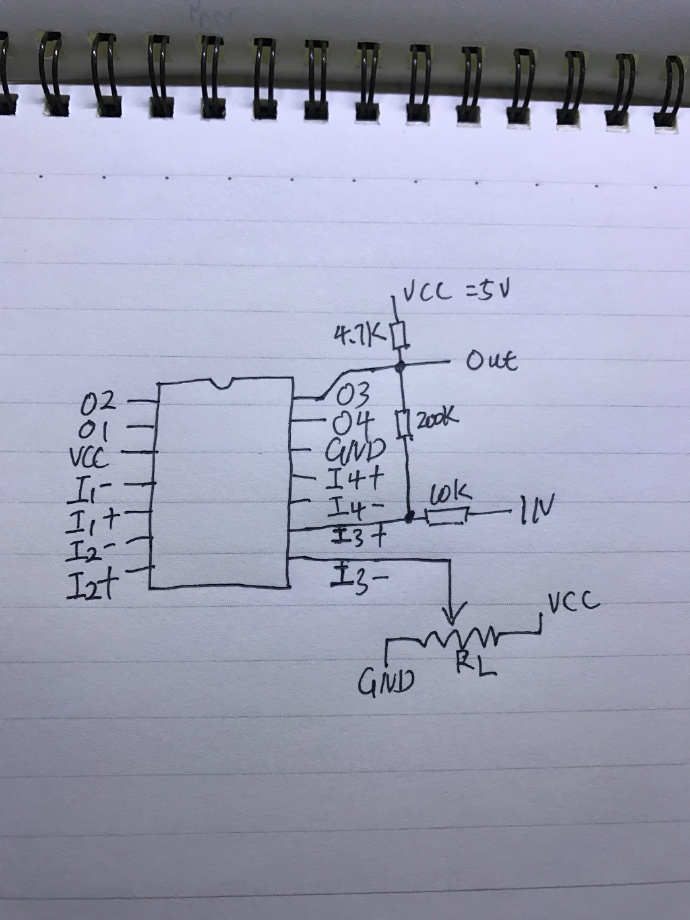 VCC =5V
4.7K
Out
O3
O2
O4
200K
O1
GND
VCC
I4+
I1-
I4-
10K
IN
I1+
I3+
I2-
I3-
I2+
VCC
RL
GND